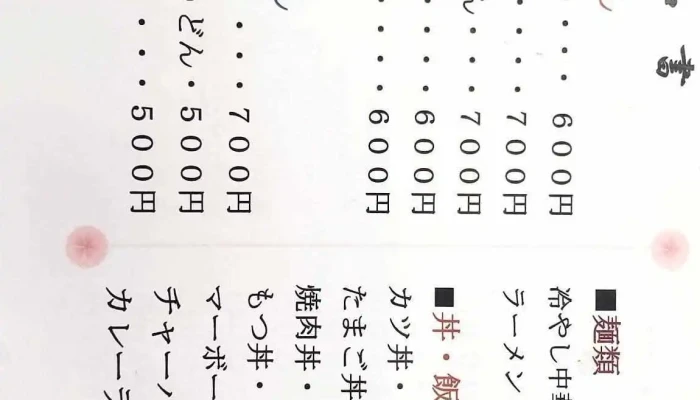 書
・・・６００円
・・・・７００円
・・・７００円
・・・・６００円
・・・・６００円
・・・７００円
どん・５００円
・・・５００円
■麺類
冷やし中
ラーメン
■丼・飯
カツ丼・
たまご丼
焼肉丼・
もつ丼・
マーボー
チャーハ
カレーラ